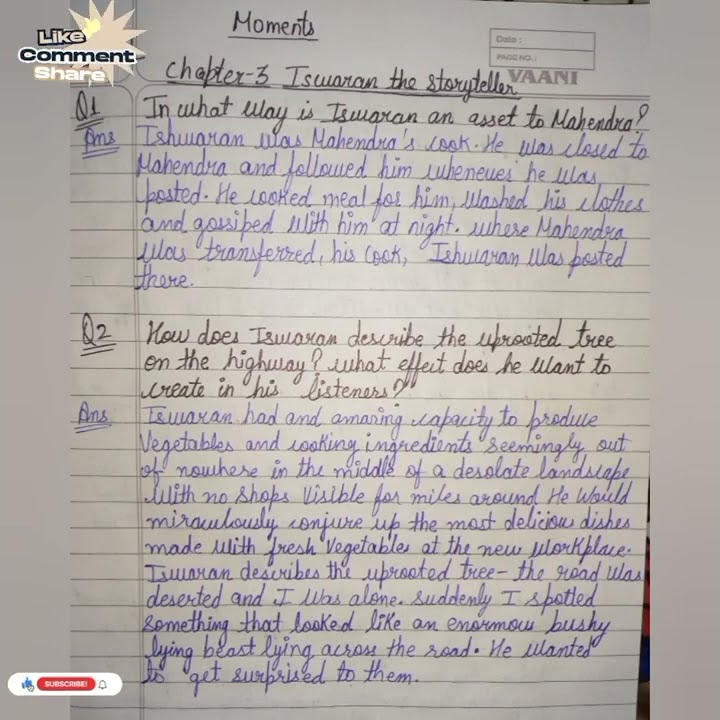 Like
Comment
Share
Moments
Date :
PAGE NO. :
VAANI
Chapter-3 Iswaran the storyteller
Q1 In what way is Iswaran an asset to Mahendra?
Ans Ishwaran was Mahendra's cook. He was closed to
Mahendra and followed him whenever he was
posted. He cooked meal for him, washed his clothes
and gossiped with him at night. where Mahendra
was transferred, his cook, Ishwaran was posted
there.
Q2 How does Iswaran describe the uprooted tree
on the highway? what effect does he want to
create in his listeners?
Ans Iswaran had and amazing capacity to produce
vegetables and cooking ingredients seemingly out
of nowhere in the middle of a desolate landscape
with no shops visible for miles around He would
miraculously conjure up the most delicious dishes
made with fresh vegetables at the new workplace.
Iswaran describes the uprooted tree- the road was
deserted and I was alone. suddenly I spotted
something that looked like an enormous bushy
lying beast lying across the road. He wanted
to get surprised to them.
SUBSCRIBE!